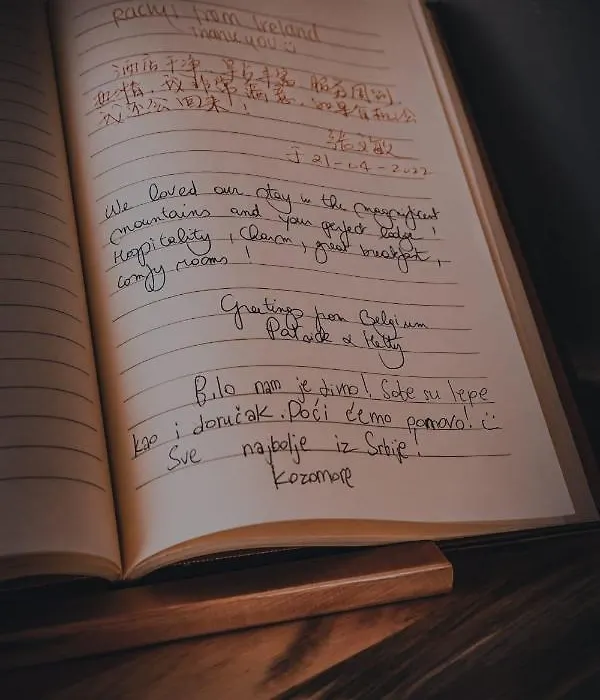 from Ireland
Thank you
酒店干净, 早占丰富, 服务周到,
热情, 我非常满意, 如果有机会
我还会回来!
于 21-04-2022
We loved our stay in the magnificent
mountains and your perfect lodge!
Hospitality, Charm, great breakfast,
comfy rooms!
Greetings from Belgium
Patrick & Ketty
Bilo nam je divno! Sobe su lepe
kao i doručak. Doći ćemo ponovo! :)
Sve najbolje iz Srbije!
Kozomore